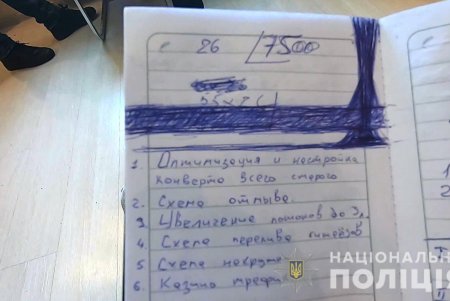 26 7500
1. Оптимизация и настройка
конверта всего старого
2. Схема отмыва
3 Увеличение потоков до 3
4 Схема перелива
5 Схема накрутк
6. Казино трафи
НАЦІОНАЛЬН
ПОЛІЦІЯ